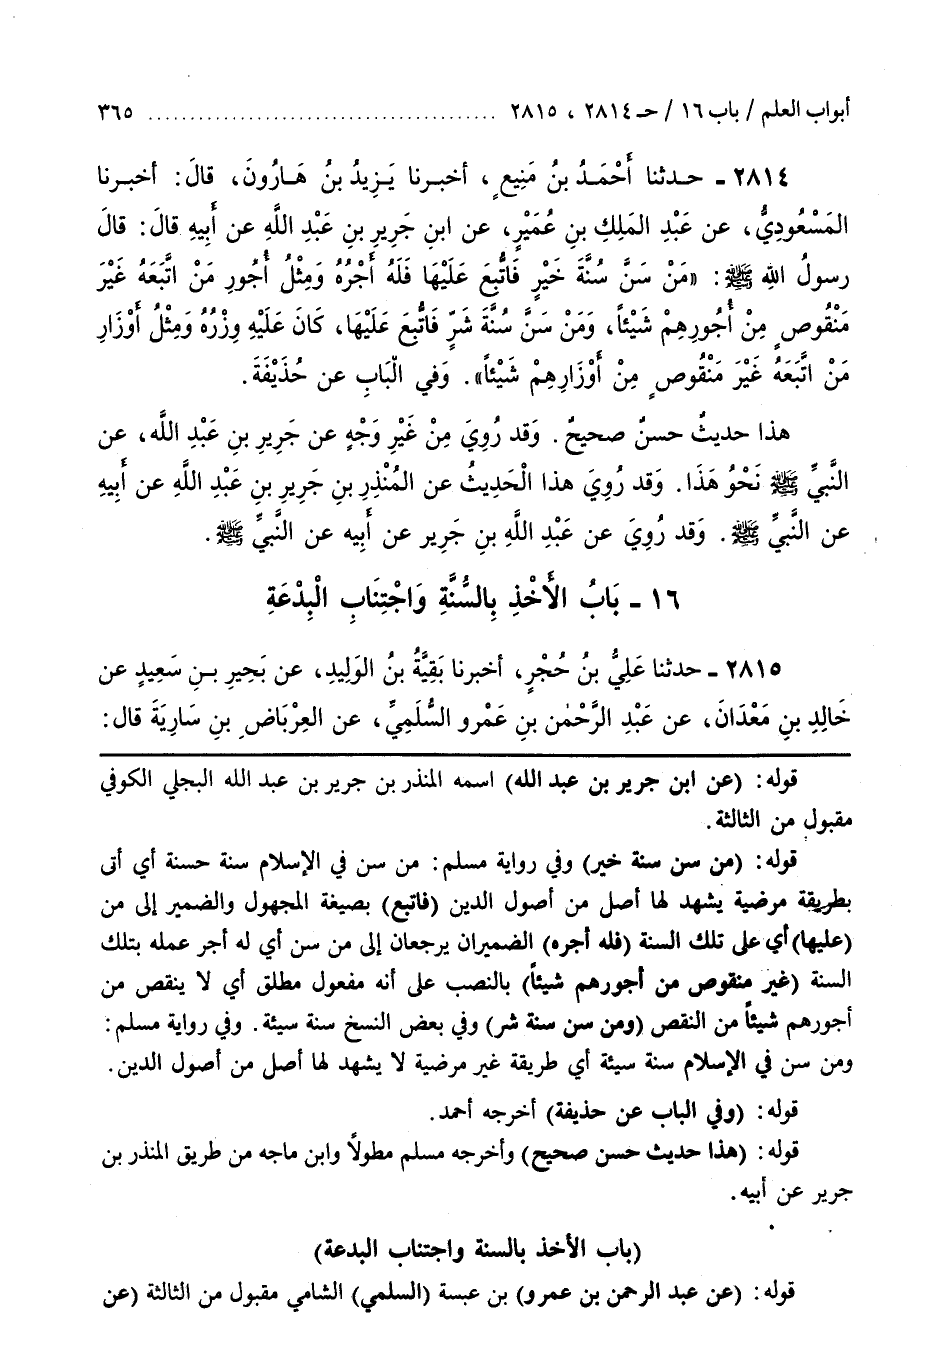 أبواب العلم / باب ١٦ / حـ ٢٨١٤ ، ٢٨١٥ ........................................ ٣٦٥
٢٨١٤ ـ حـدثنا أَحْمَـدُ بـنُ مَنِيعٍ، أخبـرنا يَـزِيدُ بـنُ هَـارُونَ، قالَ: أخبـرنا
المَسْعُودِيُّ، عن عَبْدِ المَلِكِ بنِ عُمَيْرٍ، عن ابنِ جَرِيرِ بنِ عَبْدِ اللَّهِ عن أَبِيهِ قالَ: قالَ
رسولُ اللهِ ﷺ: «مَنْ سَنَّ سُنَّةَ خَيْرٍ فَاتُّبِعَ عَلَيْهَا فَلَهُ أَجْرُهُ وَمِثْلُ أُجُورِ مَنْ اتَّبَعَهُ غَيْرَ
مَنْقُوصٍ مِنْ أُجُورِهِمْ شَيْئاً، وَمَنْ سَنَّ سُنَّةَ شَرٍّ فَاتُّبِعَ عَلَيْهَا، كَانَ عَلَيْهِ وِزْرُهُ وَمِثْلُ أَوْزَارِ
مَنْ اتَّبَعَهُ غَيْرَ مَنْقُوصٍ مِنْ أَوْزَارِهِمْ شَيْئاً». وَفي الْبَابِ عن حُذَيْفَةَ.
هذا حديثٌ حسنٌ صحيحٌ. وَقد رُوِيَ مِنْ غَيْرِ وَجْهٍ عن جَرِيرِ بنِ عَبْدِ اللَّه، عن
النَّبِيِّ ﷺ نَحْوُ هَذَا. وَقد رُوِيَ هذا الْحَدِيثُ عن المُنْذِرِ بنِ جَرِيرِ بنِ عَبْدِ اللَّهِ عن أَبِيهِ
عن النَّبِيِّ ﷺ. وَقد رُوِيَ عن عَبْدِ اللَّهِ بنِ جَرِيرٍ عن أَبِيه عن النَّبِيِّ ﷺ.
١٦ ـ بَابُ الأَخْذِ بِالسُّنَّةِ وَاجْتِنَابِ الْبِدْعَةِ
٢٨١٥ ـ حدثنا عَلِيُّ بنُ حُجْرٍ، أخبرنا بَقِيَّةُ بنُ الوَلِيدِ، عن بَحِيرِ بـنِ سَعِيدٍ عن
خَالِدِ بنِ مَعْدَانَ، عن عَبْدِ الرَّحْمٰنِ بنِ عَمْرٍو السُّلَمِيِّ، عن العِرْبَاضِ بنِ سَارِيَةَ قال:
قوله: (عن ابن جرير بن عبد الله) اسمه المنذر بن جرير بن عبد الله البجلي الكوفي
مقبول من الثالثة.
قوله: (من سن سنة خير) وفي رواية مسلم: من سن في الإسلام سنة حسنة أي أتى
بطريقة مرضية يشهد لها أصل من أصول الدين (فاتبع) بصيغة المجهول والضمير إلى من
(عليها) أي على تلك السنة (فله أجره) الضميران يرجعان إلى من سن أي له أجر عمله بتلك
السنة (غير منقوص من أجورهم شيئاً) بالنصب على أنه مفعول مطلق أي لا ينقص من
أجورهم شيئاً من النقص (ومن سن سنة شر) وفي بعض النسخ سنة سيئة. وفي رواية مسلم:
ومن سن في الإسلام سنة سيئة أي طريقة غير مرضية لا يشهد لها أصل من أصول الدين.
قوله: (وفي الباب عن حذيفة) أخرجه أحمد.
قوله: (هذا حديث حسن صحيح) وأخرجه مسلم مطولاً وابن ماجه من طريق المنذر بن
جرير عن أبيه.
(باب الأخذ بالسنة واجتناب البدعة)
قوله: (عن عبد الرحمن بن عمرو) بن عبسة (السلمي) الشامي مقبول من الثالثة (عن